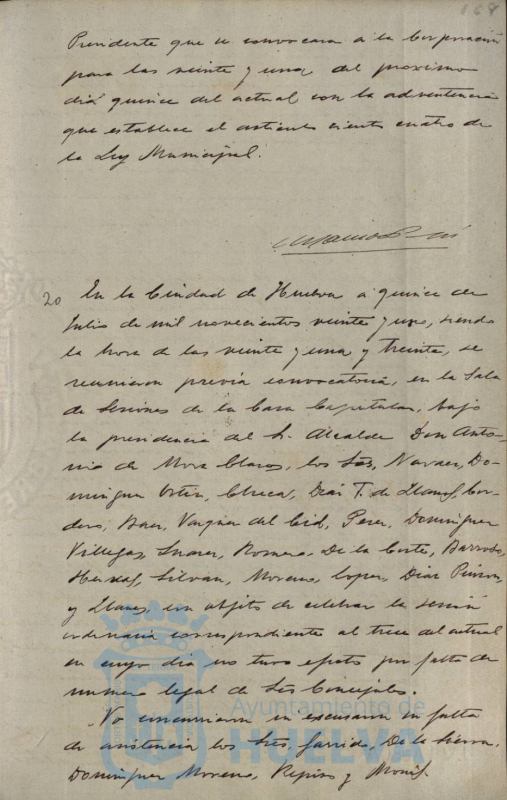 168
Presidente que se convocara a la Corporación
para las veinte y una del proximo
dia quince del actual con la advertencia
que establece el articulo ciento cuatro de
la Ley Municipal.
20 En la Ciudad de Huelva a quince de
Julio de mil novecientos veinte y uno, siendo
la hora de las veinte y una y treinta, se
reunieron previa convocatoria, en la Sala
de Sesiones de la Casa Capitular, bajo
la presidencia del Sr. Alcalde Don Anto-
nio de Mora Claros, los Sres. Narvaez, Do-
minguez Ortiz, Checa, Diaz T. de Llanos, Cor-
dero, Baez, Vazquez del Cid, Perez, Dominguez
Villegas, Suarez, Romero, De la Corte, Barroso,
Silvan, Moreno, Lopez, Diaz Pinzon,
y Llanes, con objeto de celebrar la sesión
ordinaria correspondiente al trece del actual
en cuyo dia no tuvo efecto por falta de
numero legal de Sres Concejales.
No concurrieron ni excusaron su falta
de asistencia los Sres. Garrido, De la Sierra,
Dominguez Moreno, Repiso y
Ayuntamiento de
HUELVA